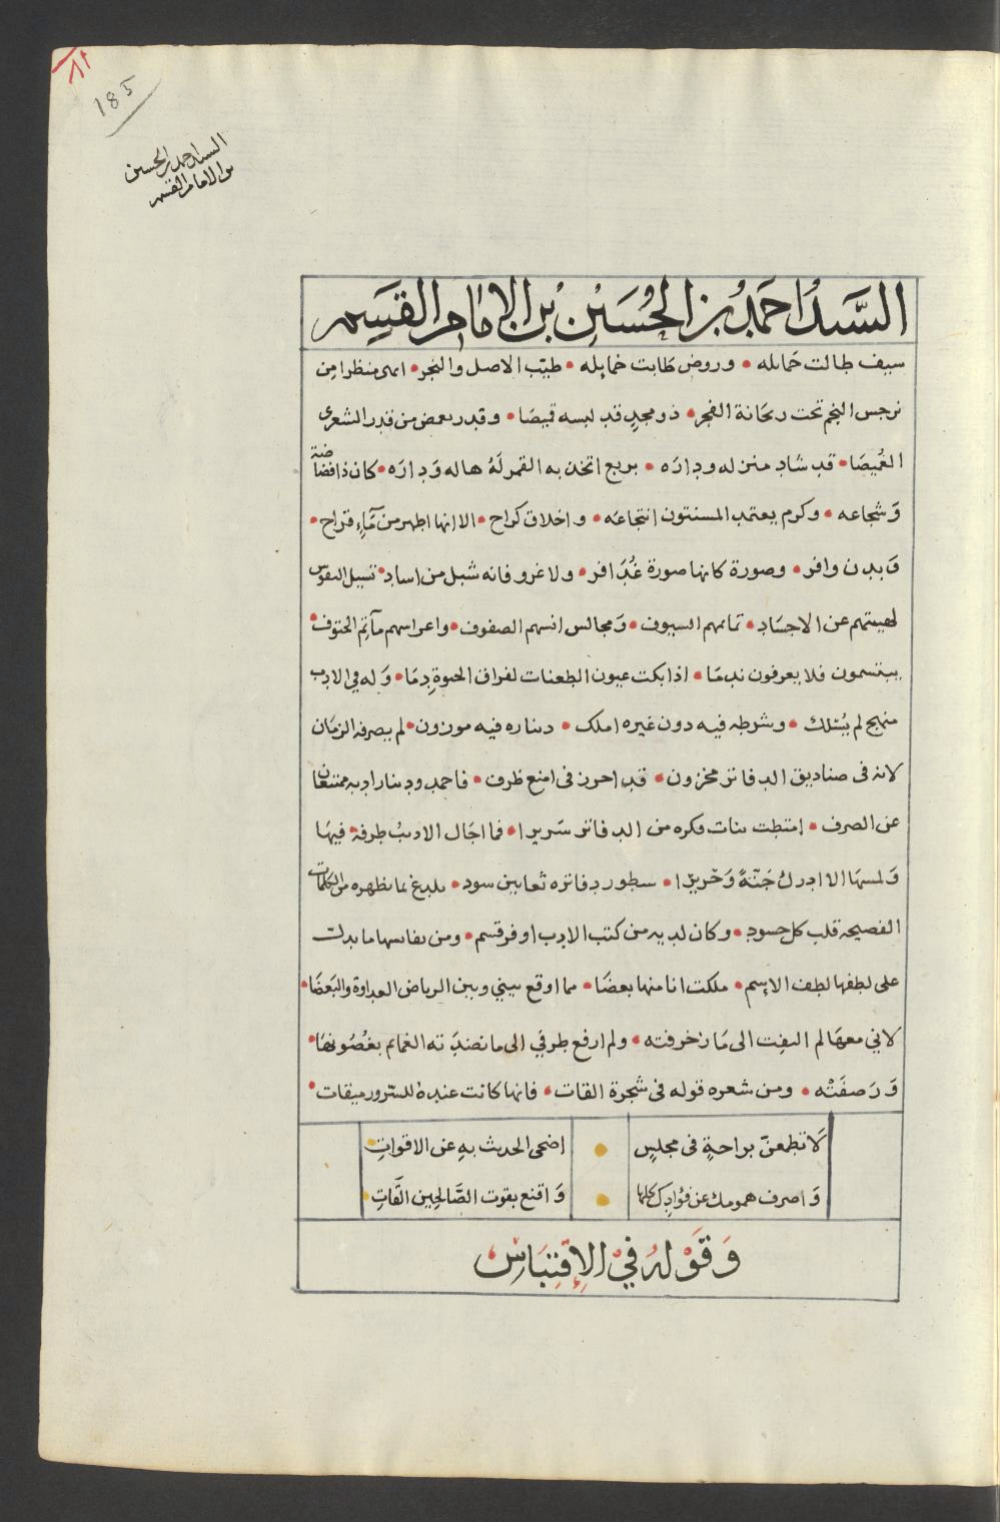 185
السيد احمد بن الحسين
بن الامام القسم
السَّيّدُ احمَدُ بن الحُسَيْن بْن الاِمَام القَسِم
سيف طالت حمائله • وروض طابت خمايله • طيّب الاصل والنجر • ابهى منظرا من
نرجس النجم تحت ريحانة الفجر • ذو مجدٍ قد لبسه قميصًا • وقدر بعض من قدره الشعرى
الغُميصَا • قد شاد منزله ودارَه • بربع اتخذ به القمر لَهُ هاله وَدارَه • كان ذا فضاضة
وَشجاعه • وكرم يعتمد المسنتون انتجاعَه • واخلاق كراح • الا انها اطهر من مَآءِ قراح •
وَبدن وافر • وصورة كانها صورة غُدَافر • ولا غرو فانه شبل من اساد • تسيل النفوس
لهيبتهم عن الاجسَاد • تمايمهم السيوف • وَمجالس انسهم الصفوف • واعراسهم مآتم الحتوف •
يبتسمون فلا يعرفون ندمَا • اذا بكت عيون الطعنات لفراق الحيوة دِمَا • وَله في الادب
منهج لم يُسْلك • وشرطه فيه دون غيره املك • ديناره فيه موزون • لم يصرفه الزمَان
لانه فى صناديق الدفاتر مخزون • قد احرز فى امنع ظرف • فاحمد ودينار ادبه ممتنعان
عن الصرف • امتطت بنات فكره من الدفاتر سَريرا • فما اجَال الاديبُ طرفه فيهَا
وَلمسهَا الا ادرك جَنّةً وَحَريرًا • سطور دفاتره ثعابين سود • يلدغ بما تظهره من الكلمات
الفصيحه قلب كل حسود • وكان لديه من كتب الادب اوفر قسم • ومن نفايسها ما يدلك
على لطفها لطف الاسم • ملكت انا منها بعضَا • مما اوقع بيني وبين الرياض العداوة والبَغضَا •
لاني معهَا لم التفِت الى مَا زخرفته • ولم ارفع طرفي الى ما نضدَته الغمايم بغُصُونهَا •
وَرَصفَتْه • ومن شعره قوله فى شجرة القات • فانها كانت عنده للسّرور ميقات •
لَا تطمعنّ براحةٍ فى مجلسٍ • اضحى الحديث بهِ عن الاقواتِ
وَاصرف همومك عن فؤادِك كلها • وَاقنع بقوت الصَّالحِين القَاتِ
وَقَوْلهُ فيْ الاِقْتِبَاسْ